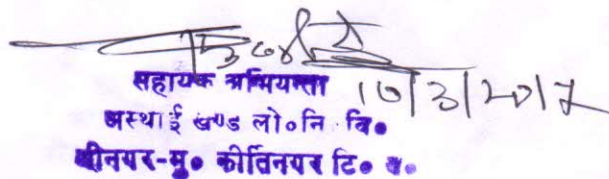 सहायक अभियन्ता
10/3/2017
अस्थाई खण्ड लो०नि०वि०
श्रीनगर-मु० कीर्तिनगर टि० ग०